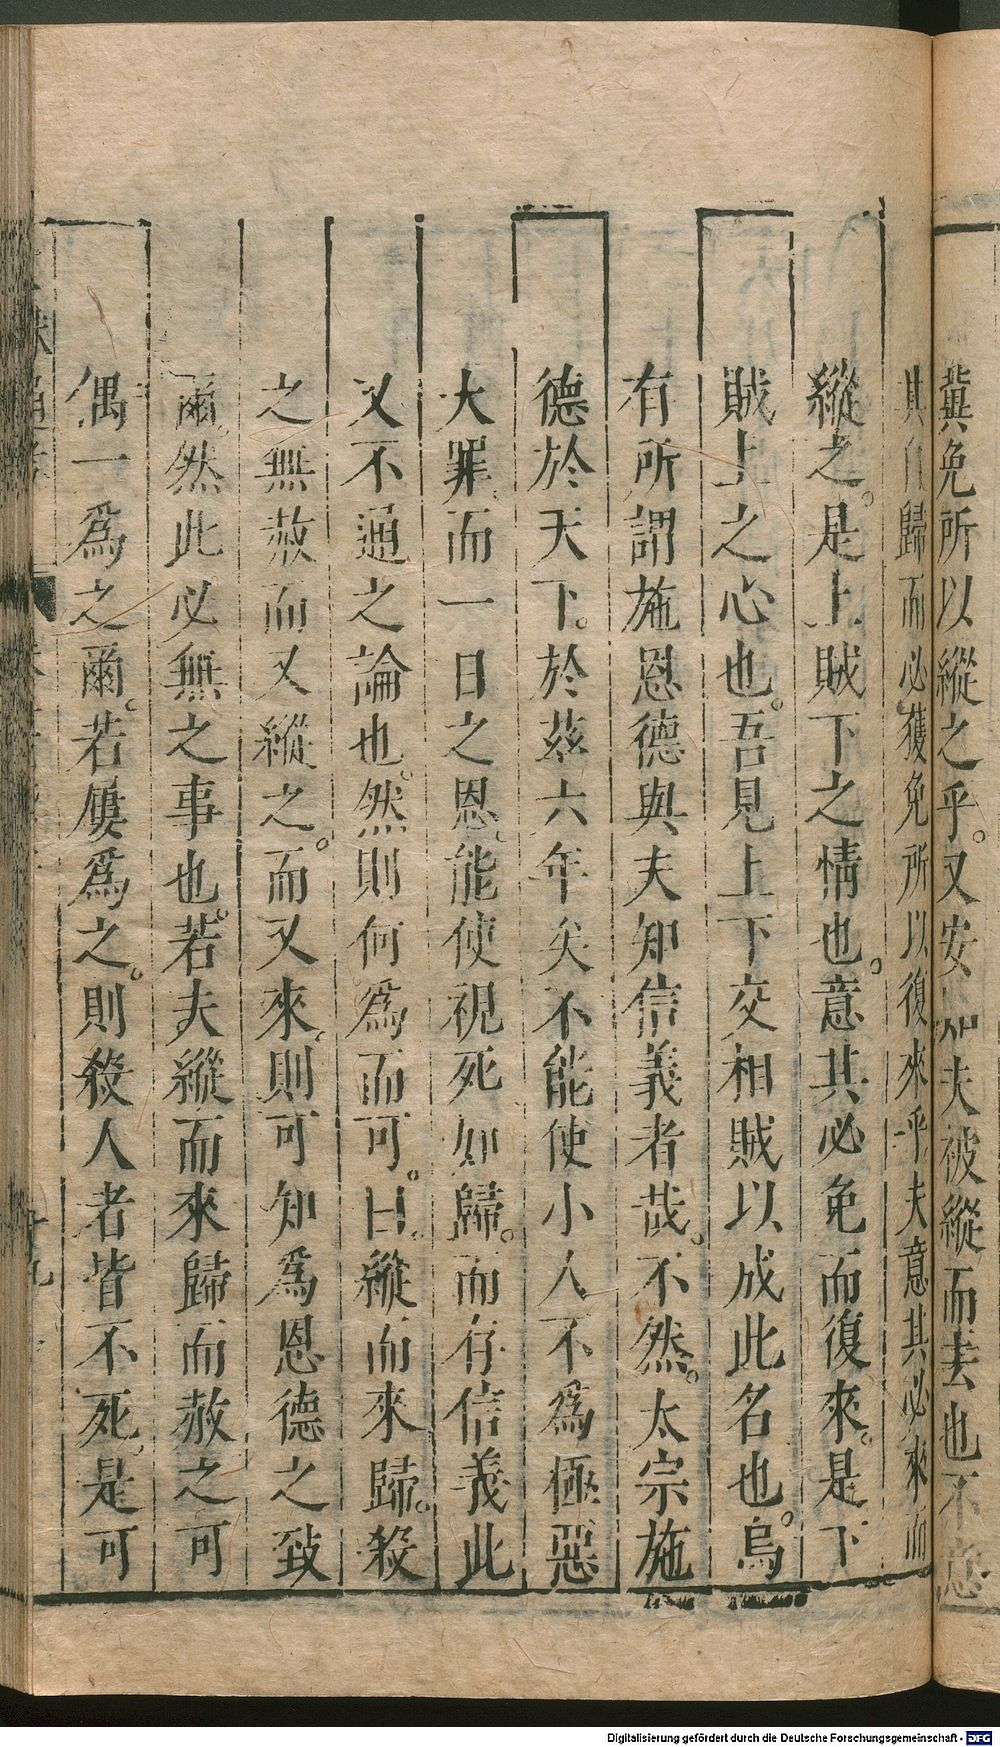 冀免所以縱之乎。又安知夫被縱而去也不意
其自歸而必獲免所以復來乎夫意其必來而
縱之。是上賊下之情也。意其必免而復來。是下
賊上之心也。吾見上下交相賊以成此名也。烏
有所謂施恩德與夫知信義者哉。不然。太宗施
德於天下。於茲六年矣不能使小人不為極惡
大罪、而一日之恩、能使視死如歸。而存信義此
又不通之論也。然則何為而可。曰、縱而來歸。殺
之無赦而又縱之。而又來、則可知為恩德之致
爾、然此必無之事也。若夫縱而來歸而赦之可
偶一為之爾。若屢為之。則殺人者皆不死、是可
Digitalisierung gefördert durch die Deutsche Forschungsgemeinschaft - DFG